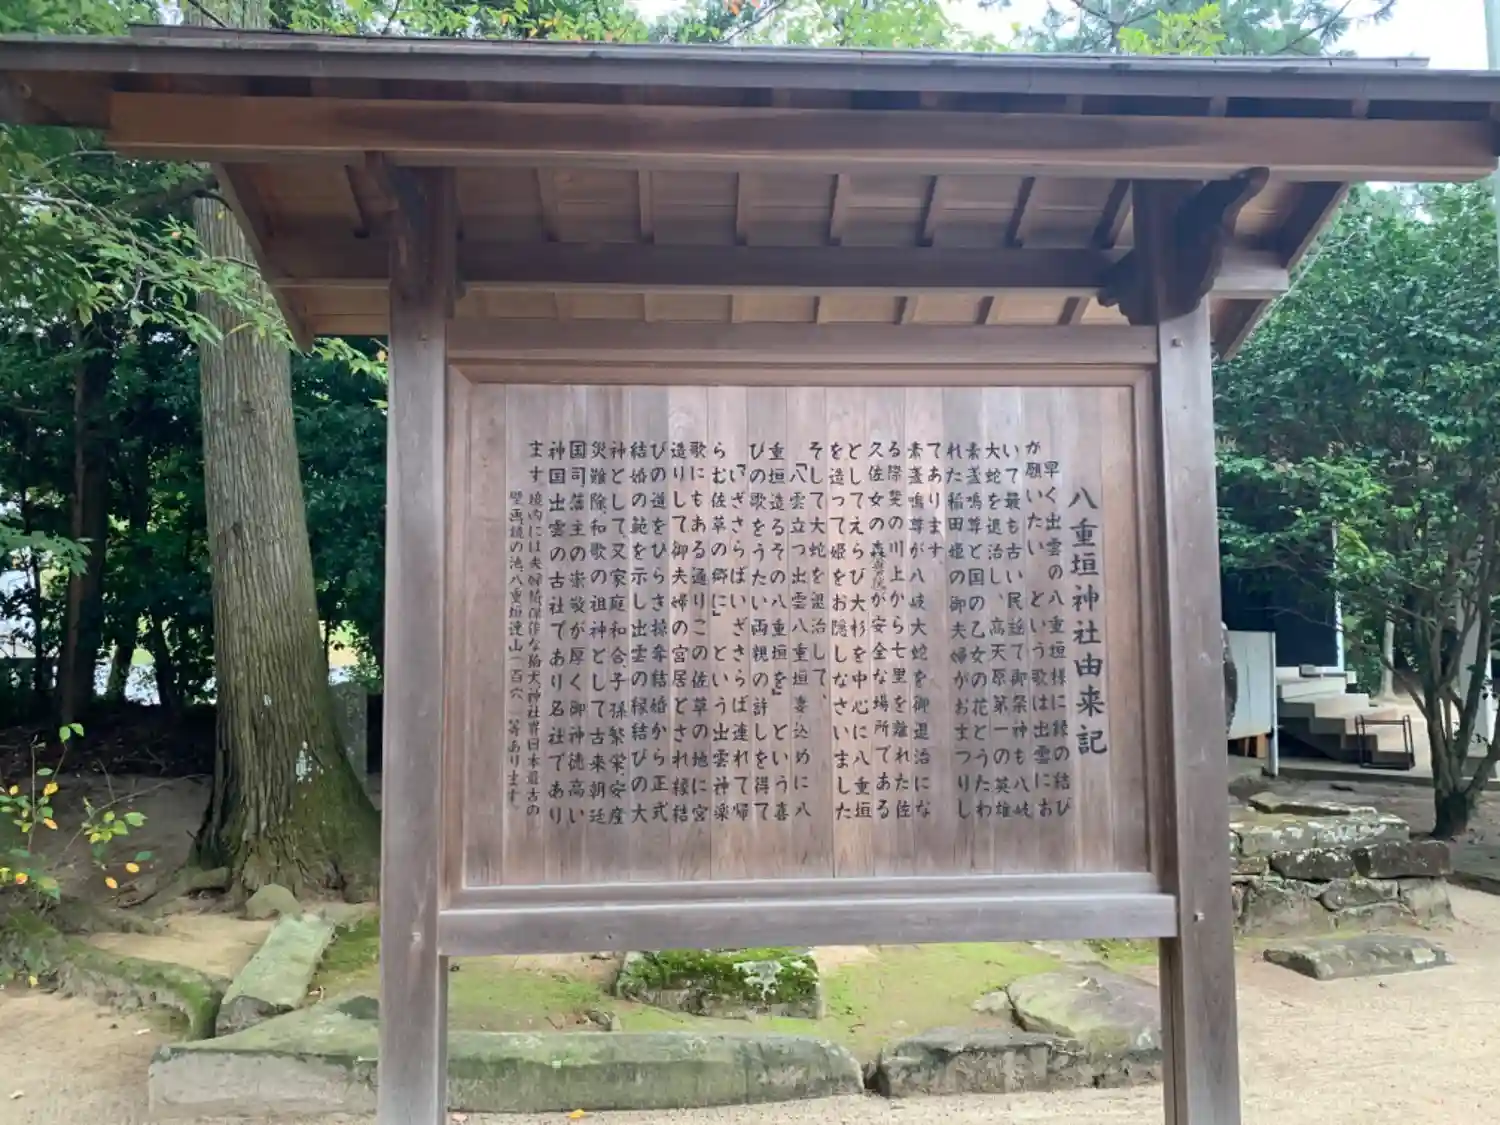 八重垣神社由来記
早く出雲の八重垣様に縁の結び
が願いたい という歌は出雲にお
いて最も古い民謡で御祭神も八岐
大蛇を退治し、高天原第一の英雄
素盞嗚尊と国の乙女の花とうたわ
れた稲田姫の御夫婦がおまつりし
てあります。
素盞嗚尊が八岐大蛇を御退治にな
る際斐の川上から七里を離れた佐
久佐女の森が安全な場所である
としてえらび大杉を中心に八重垣
を造って姫をお隠しなさいました
そして大蛇を退治して、
「八雲立つ出雲八重垣妻込めに八
重垣造るその八重垣を」という喜
びの歌をうたい両親の許しを得て
「いざさらばいざさらば連れて帰
らむ佐草の郷に」という出雲神楽
歌にもある通りこの佐草の地に宮
造りして御夫婦の宮居とされ縁結
びの道をひらき掠奪結婚から正式
結婚の範を示し出雲の縁結びの大
神として、又家庭和合、子孫繁栄、安産
災難除、和歌の祖神として古来朝廷
国司藩主の崇敬が厚く御神徳高い
神国出雲の古社であり名社であり
ます 境内には夫婦椿 な狛犬 神社 日本最古の
壁画鏡の池八重垣連山一百穴 等あります。